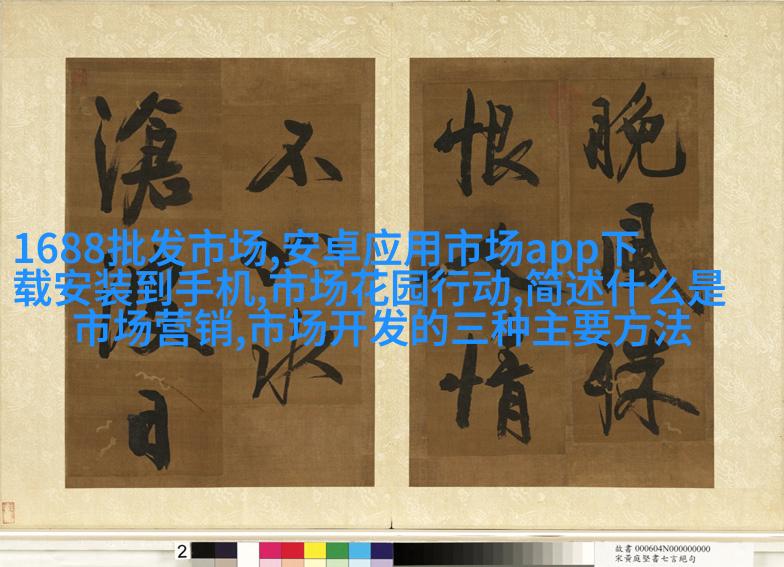 晚風殊
恨人情
不水
滄日
1688批发市场,安卓应用市场app下
载安装到手机,市场花园行动,简述什么是
市场营销,市场开发的三种主要方法
2
故書 000604N000000000
宋黃庭堅書七言絕句